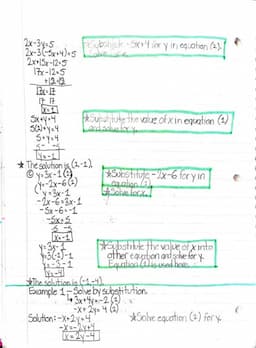 2x-3y=5
2x-3(-5x+4)=5
2x+15x-12=5
17x-12=5
+12 +12
17x=17
17 17
x=1
*Substitute -5x+4 for y in equation (2).
5x+y=4
5(1)+y=4
5+y=4
-5 -5
y=-1
*Substitute the value of x in equation (1)
and solve for y.
*The solution is (1,-1).
y=3x-1 (1)
y=-2x-6 (2)
y=3x-1
-2x-6=3x-1
-5x-6=-1
-5x=5
-5 -5
x=-1
*Substitute -2x-6 for y in
equation (1).
*Solve for x.
y=3x-1
y=3(-1)-1
y=-3-1
y=-4
*Substitute the value of x into
other equation and solve for y.
Equation (1) is used here.
*The solution is (-1,-4).
Example 1 - Solve by substitution.
3x+4y=-2 (1)
-x+2y=4 (2)
Solution: -x+2y=4
-x=-2y+4
x=2y-4
*Solve equation (2) for y.